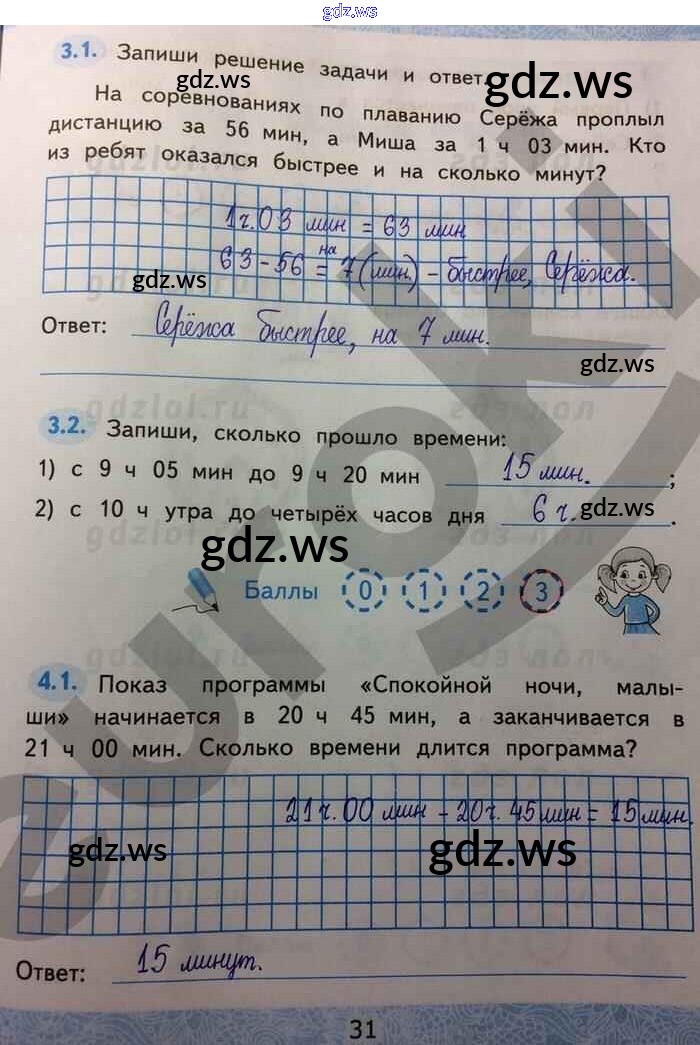 gdz.ws
3.1. Запиши решение задачи и ответ.
gdz.ws
gdz.ws
На соревнованиях по плаванию Серёжа проплыл
дистанцию за 56 мин, а Миша за 1 ч 03 мин. Кто
из ребят оказался быстрее и на сколько минут?
1ч.03 мин = 63 мин
на
63-56 = 7 (мин.) - быстрее, Серёжа.
gdz.ws
gdz.ws
Ответ: Серёжа быстрее, на 7 мин.
gdz.ws
3.2. Запиши, сколько прошло времени:
1) с 9 ч 05 мин до 9 ч 20 мин 15 мин. ;
2) с 10 ч утра до четырёх часов дня 6 ч. .
gdz.ws
gdz.ws
Баллы 0 1 2 3
4.1. Показ программы «Спокойной ночи, малы-
ши» начинается в 20 ч 45 мин, а заканчивается в
21 ч 00 мин. Сколько времени длится программа?
21ч.00 мин - 20ч.45мин = 15мин.
gdz.ws
gdz.ws
Ответ: 15 минут.
31
euroki